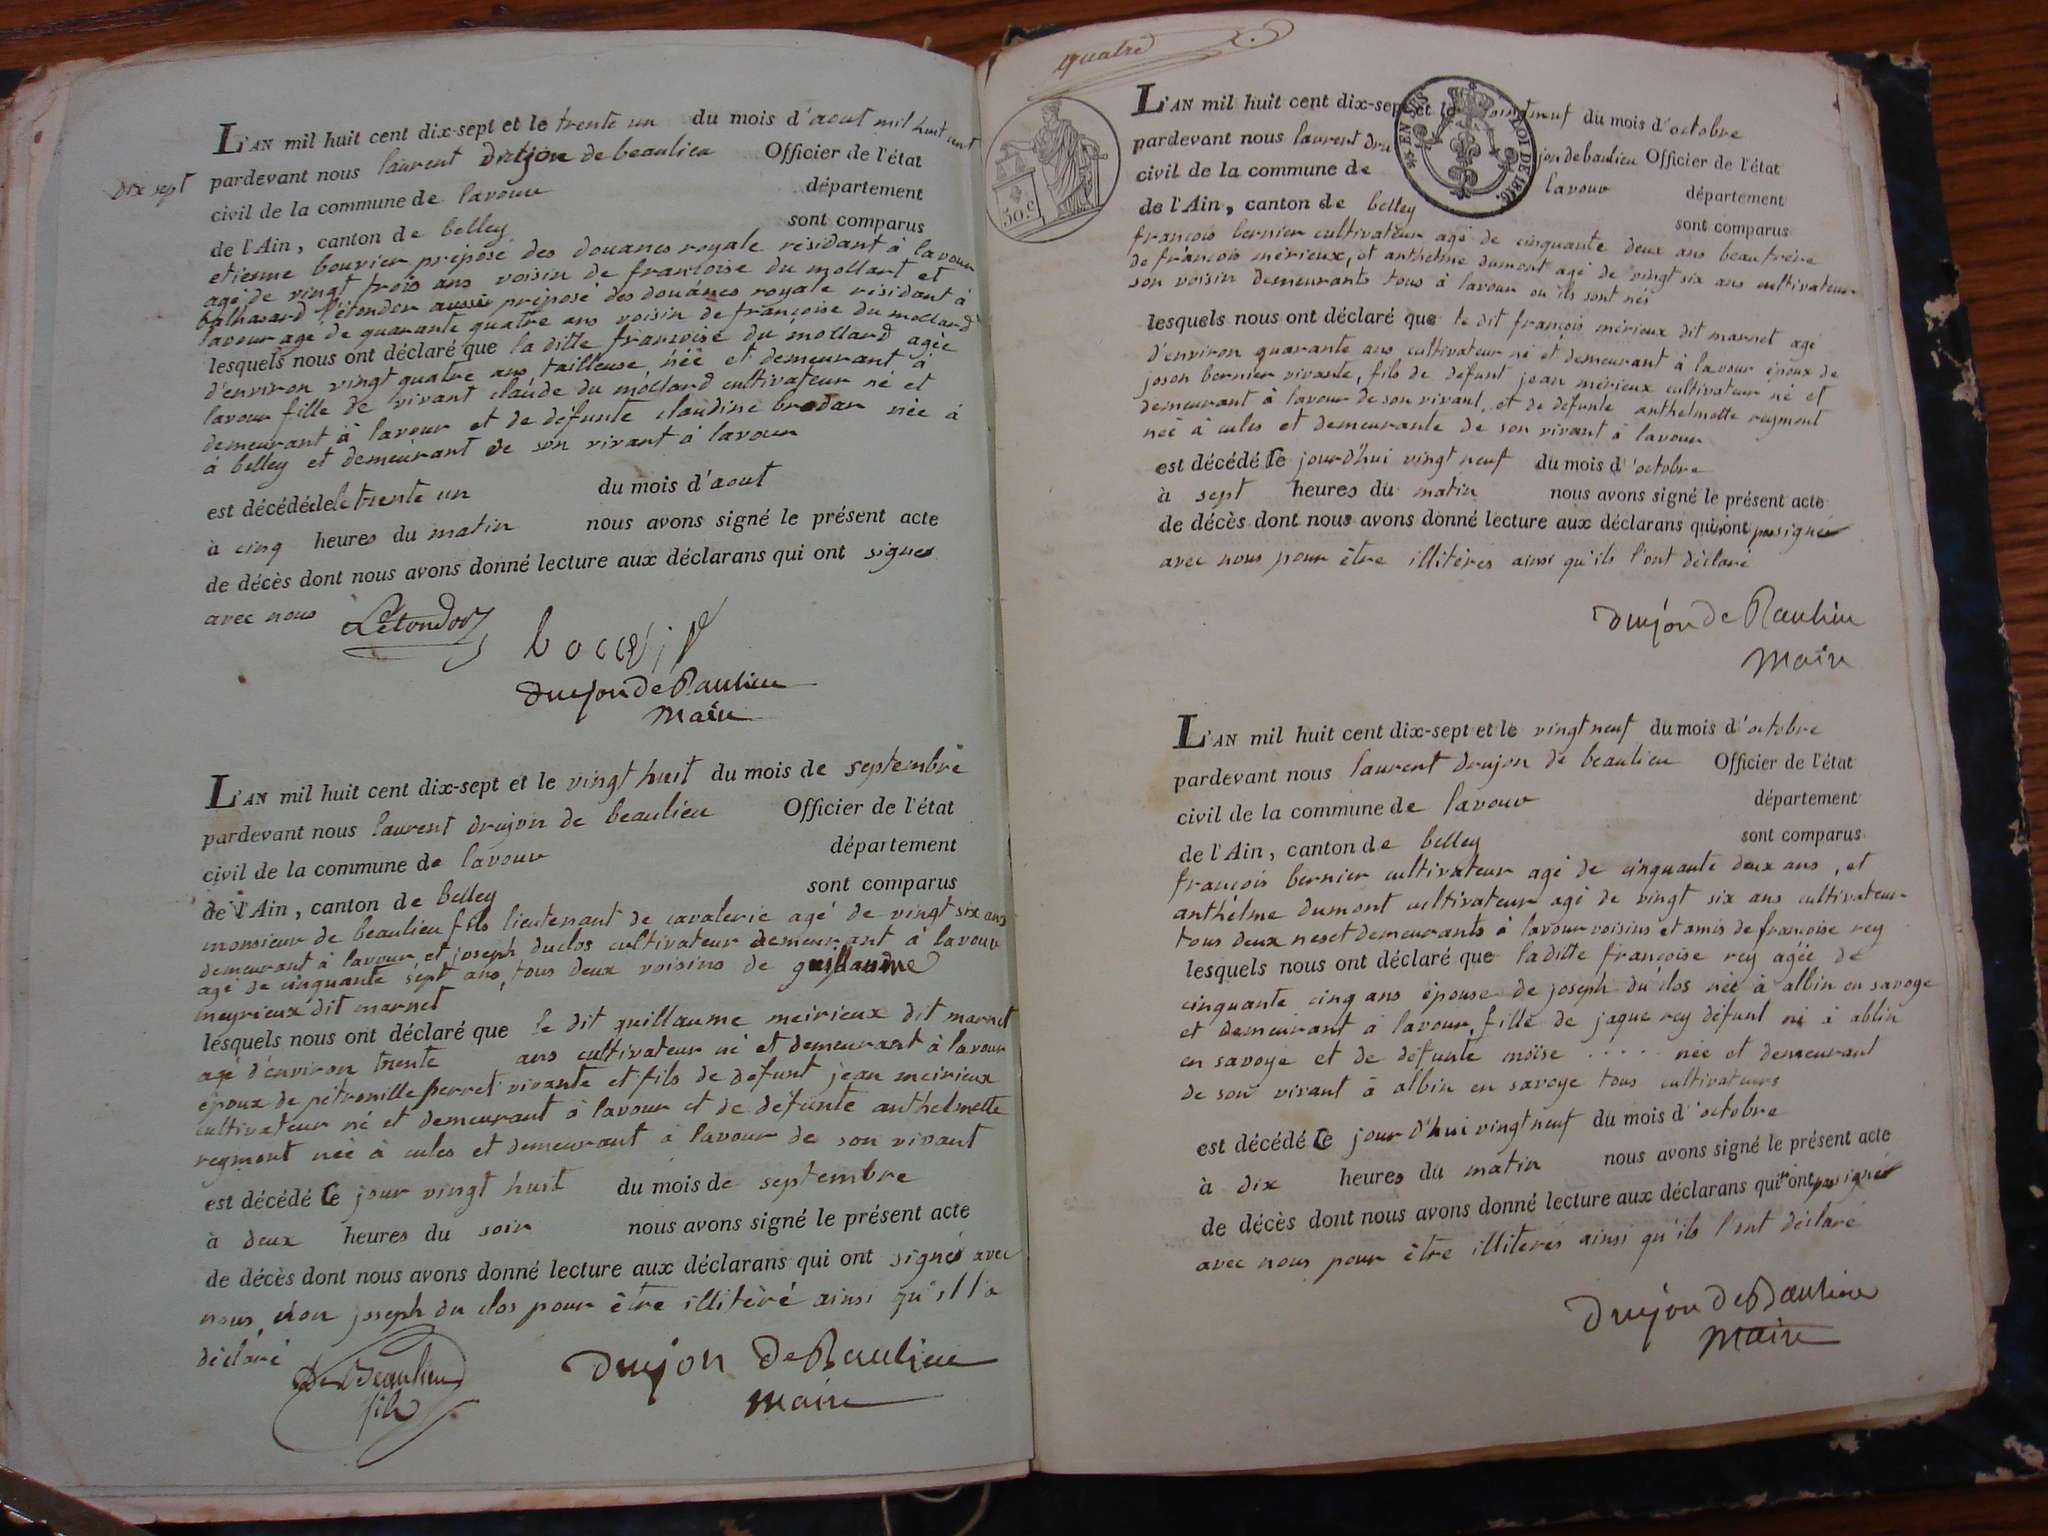 L'AN mil huit cent dix-sept et le trente un du mois d'aout mil huit cent
dix sept pardevant nous laurent drujon de beaulieu Officier de l'état
civil de la commune de lavour département
de l'Ain, canton de belley sont comparus
etienne bouvier préposé des douanes royale résidant à lavour
agé de vingt trois ans voisin de francoise du mollart et
balthasard l'étondor aussi préposé des douanes royale résidant à
lavour agé de quarante quatre ans voisin de francoise du mollard
lesquels nous ont déclaré que la ditte francoise du mollard agée
d'environ vingt quatre ans tailleuse, néé et demeurant à
lavour fille de vivant claude du mollard cultivateur né et
demeurant à lavour et de défunte claudine brodar née à
à belley et demeurant de son vivant à lavour
est décédé le trente un du mois d'aout
à cinq heures du matin nous avons signé le présent acte
de décès dont nous avons donné lecture aux déclarans qui ont signés
avec nous
Létondor
Drujon de Beaulieu
Maire
L'AN mil huit cent dix-sept et le vingt huit du mois de septembre
pardevant nous laurent drujon de beaulieu Officier de l'état
civil de la commune de lavour département
de l'Ain, canton de belley sont comparus
monsieur de beaulieu fils lieutenant de cavalerie agé de vingt six ans
demeurant à lavour et joseph duclos cultivateur demeurant à lavour
agé de cinquante sept ans, tous deux voisins de guillaume
meyrieux dit marnet
lesquels nous ont déclaré que le dit guillaume meirieux dit marnet
agé d'environ trente ans cultivateur né et demeurant à lavour
époux de pétronille perret vivante et fils de défunt jean meirieux
cultivateur né et demeurant à lavour et de défunte anthelmette
reymont née à culos et demeurant à lavour de son vivant
est décédé Ce jour vingt huit du mois de septembre
à deux heures du soir nous avons signé le présent acte
de décès dont nous avons donné lecture aux déclarans qui ont signés avec
nous, non joseph du clos pour être illitéré ainsi qu'il l'a
déclaré
De Beaulieu
fils
Drujon De Beaulieu
Maire
quatre
50 c
EN SUS
LOI DE 1816.
L'AN mil huit cent dix-sept et le vingt neuf du mois d'octobre
pardevant nous laurent drujon de baulieu Officier de l'état
civil de la commune de lavour département
de l'Ain, canton de belley sont comparus
françois bernier cultivateur agé de cinquante deux ans beaufrére
de françois mérieux, et anthelme dumont agé de vingt six ans cultivateur
son voisin demeurants tous à lavour ou ils sont nés
lesquels nous ont déclaré que le dit françois mérieux dit marnet agé
d'environ quarante ans cultivateur né et demeurant à lavour époux de
joson bernier vivante, fils de défunt jean mérieux cultivateur né et
demeurant à lavour de son vivant, et de défunte anthelmette reymont
née à culos et demeurante de son vivant à lavour
est décédé Ce jourd'hui vingt neuf du mois d'octobre
à sept heures du matin nous avons signé le présent acte
de décès dont nous avons donné lecture aux déclarans qui n'ont pas signés
avec nous pour être illitérés ainsi qu'ils l'ont déclaré
Drujon De Beaulieu
Maire
L'AN mil huit cent dix-sept et le vingt neuf du mois d'octobre
pardevant nous laurent drujon de beaulieu Officier de l'état
civil de la commune de lavour département
de l'Ain, canton de belley sont comparus
françois bernier cultivateur agé de cinquante deux ans, et
anthélme dumont cultivateur agé de vingt six ans cultivateur
tous deux nés et demeurants à lavour voisins et amis de françoise rey
lesquels nous ont déclaré que la ditte françoise rey agée de
cinquante cinq ans épouse de joseph du clos née à albin en savoye
et demeurant à lavour, fille de jaque rey défunt né à ablin
en savoye et de défunte moïse ..... née et demeurant
de son vivant à albin en savoye tous cultivateurs
est décédé Ce jour d'hui vingt neuf du mois d'octobre
à dix heures du matin nous avons signé le présent acte
de décès dont nous avons donné lecture aux déclarans qui n'ont pas signés
avec nous pour être illiterés ainsi qu'ils l'ont déclaré
Drujon De Beaulieu
Maire